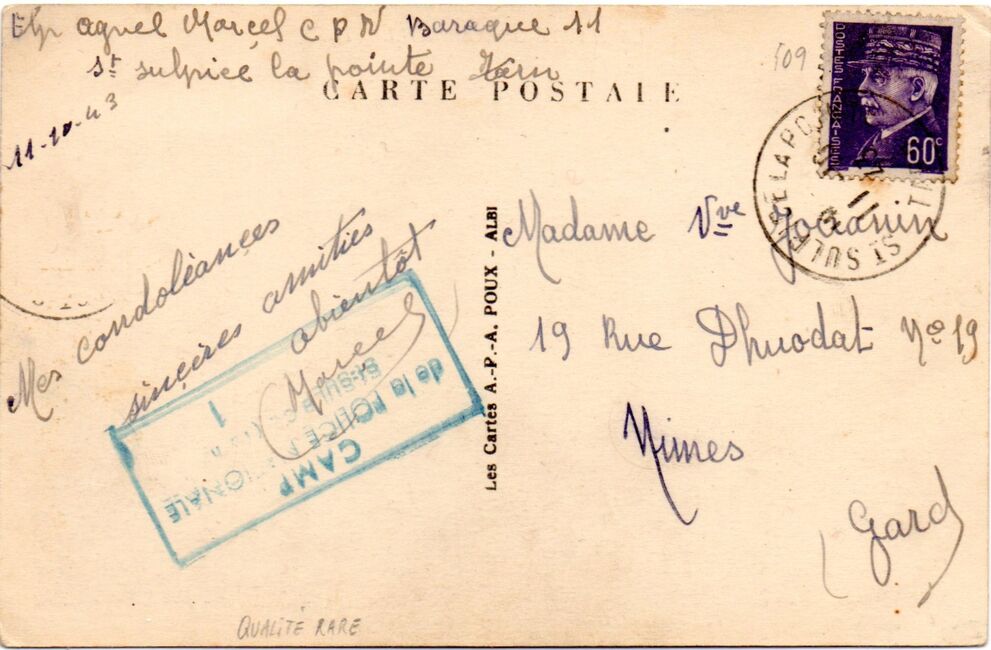 Exp Agnel Marcel C P N Baraque 11
St sulpice la pointe Tarn
11-10-43
CARTE POSTALE
109
POSTES FRANÇAISES
60c
ST SULPICE LA POINTE
TARN
Mes condoléances
sinçères amitiés
abientôt
Marcel
CAMP
de la POLICE NATIONALE
St-SULPICE
1
Les Cartes A.-P.-A. POUX - ALBI
Madame Vve
19 Rue Dhuodat No 19
Nimes
(Gard)
QUALITÉ RARE